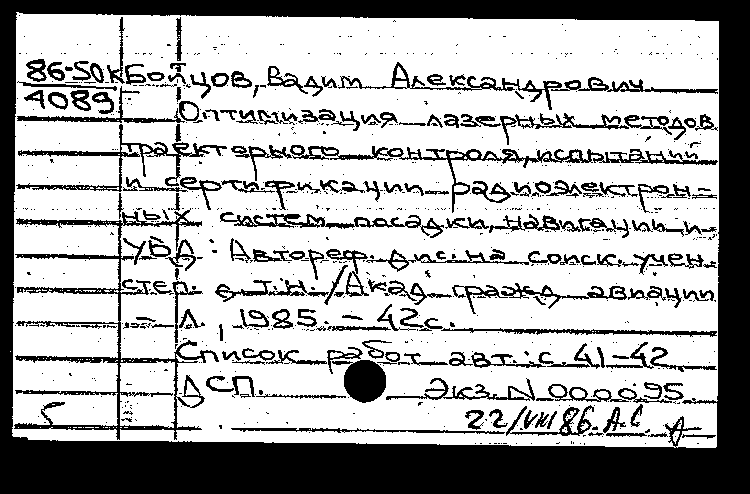 86-50к Бойцов, Вадим Александрович.
4089
Оптимизация лазерных методов
траекторного контроля, испытаний
и сертификации радиоэлектрон-
ных систем посадки, навигации и
УВД : Автореф. дис. на соиск. учен.
степ. д.т.н. / Акад. гражд. авиации
- Л., 1985. - 42 с.
Список работ авт.: с. 41-42
ДСП. Экз. N 000095.
22/VIII 86. А.С.